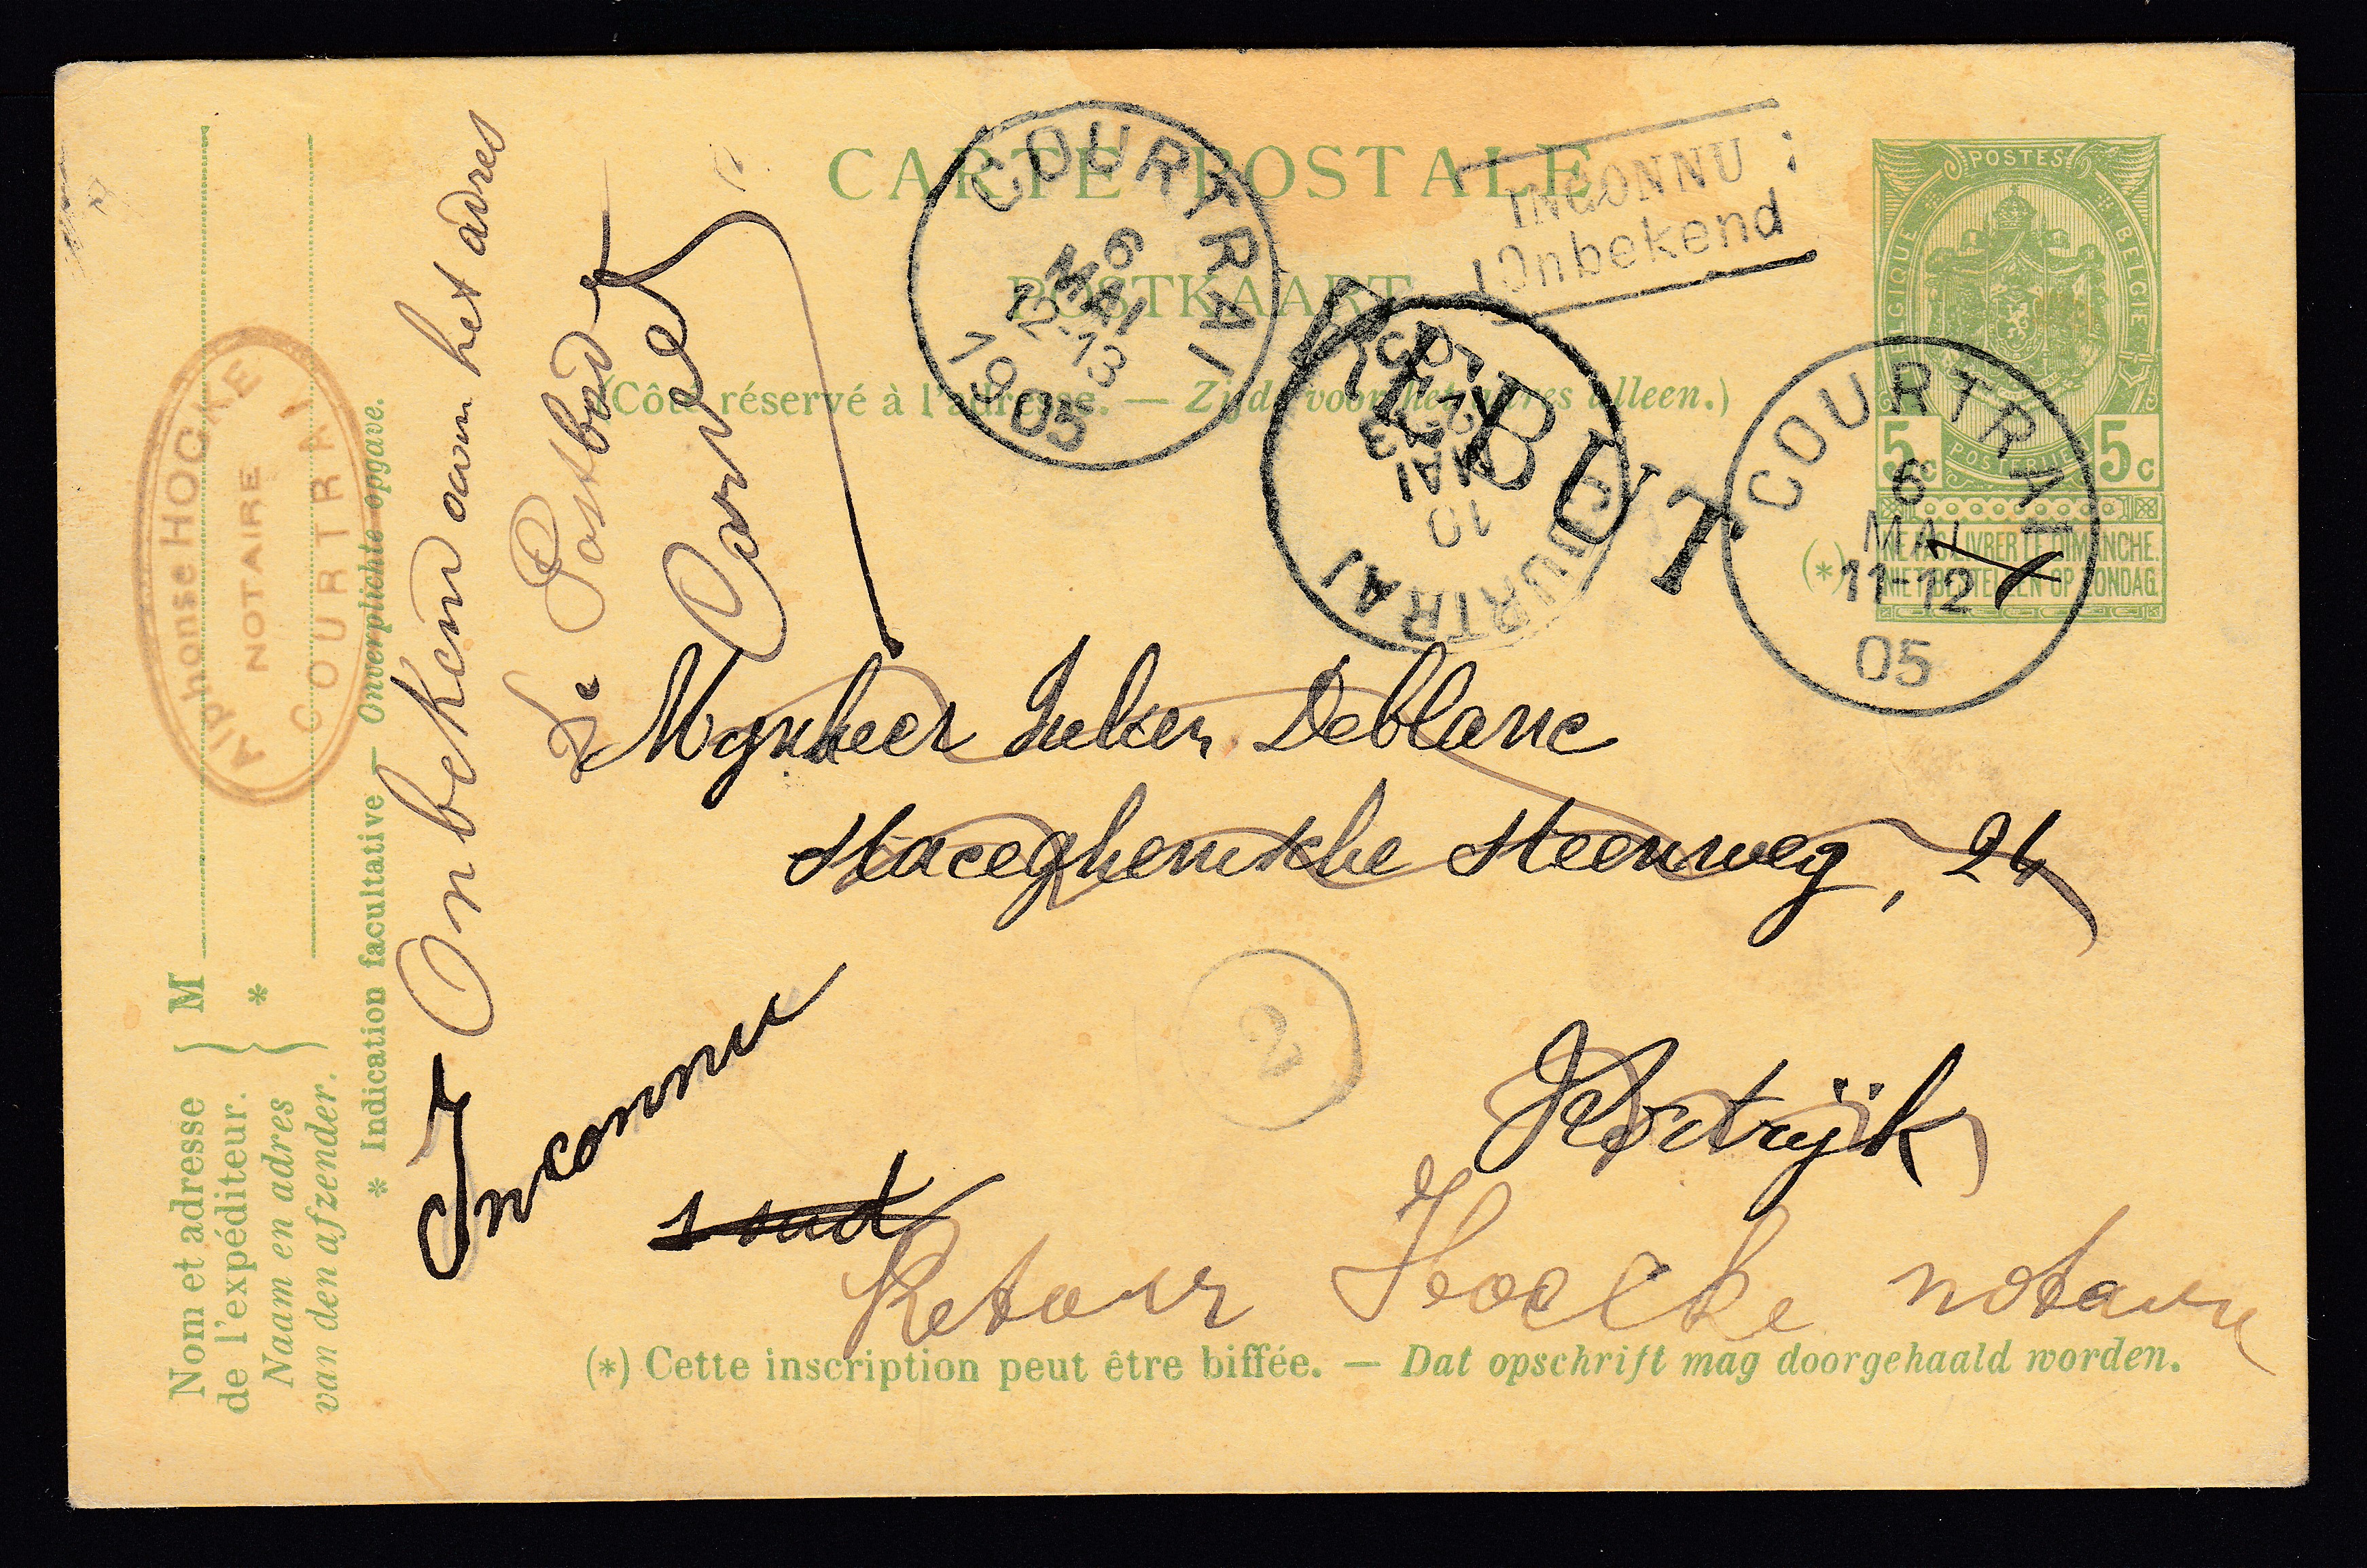 CARTE POSTALE
POSTKAART
(Côté réservé à l'adresse. — Zijde voor het adres alleen.)
COURTRAI
6
MAI
12-13
1905
INCONNU
Onbekend
REBUT
COURTRAI
10
MAI
1905
POSTES
BELGIQUE
BELGIË
POSTERIJEN
5c 5c
NE PAS LIVRER LE DIMANCHE.
NIET BESTELLEN OP ZONDAG.
(*)
COURTRAI
6
MAI
11-12
05
Mynheer Deblauc
Steenweg, 24
Kortrijk
2
Inconnu
Retour Hocke notaire
(*) Cette inscription peut être biffée. — Dat opschrift mag doorgehaald worden.
Onbekend aan het adres
De Postbode
Alphonse HOCKE
NOTAIRE
COURTRAI
Nom et adresse
de l'expéditeur.
Naam en adres
van den afzender.
M
*
* Indication facultative — Onverplichte opgave.